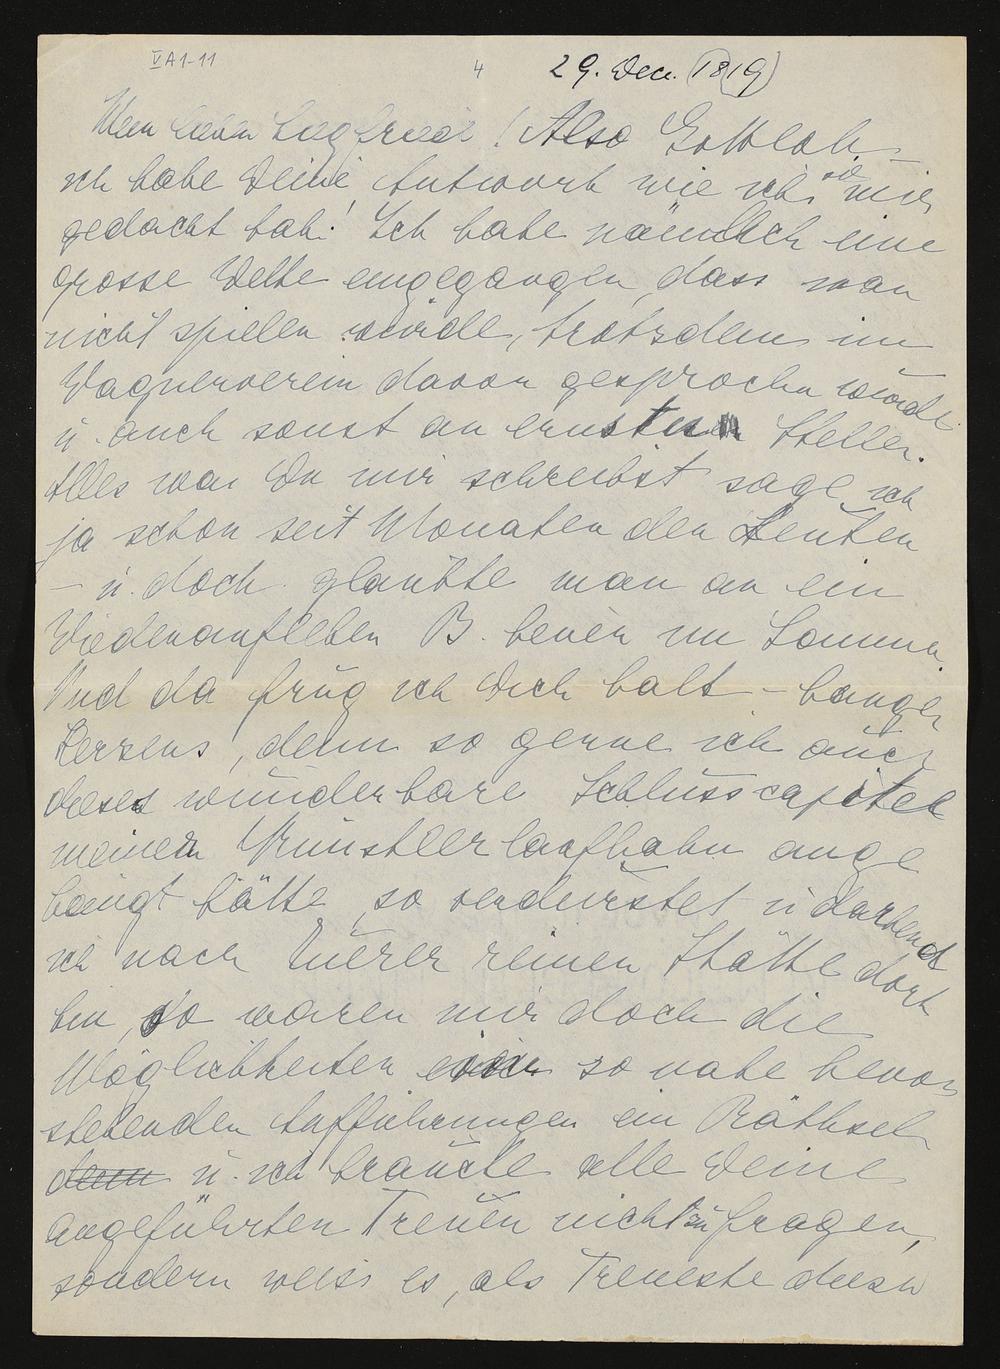 V A 1-11
4
29. Dec. (1819)
Mein lieber Siegfried! Also Gottlob
ich habe Deine Antwort wie ich's so mir
gedacht hab! Ich habe nämlich eine
grosse Wette eingegangen, dass man
nicht spielen würde, trotzdem im
Wagnerverein davon gesprochen wurde
u. auch sonst an ernsten Stellen.
Alles was Du mir schreibst sage ich
ja schon seit Monaten den Leuten
– u. doch glaubte man an ein
Wiederaufleben B. heuer im Sommer.
Und da frug ich Dich halt – bangen
Herzens, denn so gerne ich auch
dieses wunderbare Schlusscapitel
meiner Künstlerlaufbahn ange
hängt hätte, so verdurstet u darbend
ich nach Eurer reinen Stätte dort
bin, so waren mir doch die
Möglichkeiten so nahe bevor
stehenden Aufführungen ein Räthsel
denn u. ich brauchte alle Deine
angeführten Treuen nicht zu fragen,
sondern weiss es, als Treueste dieser